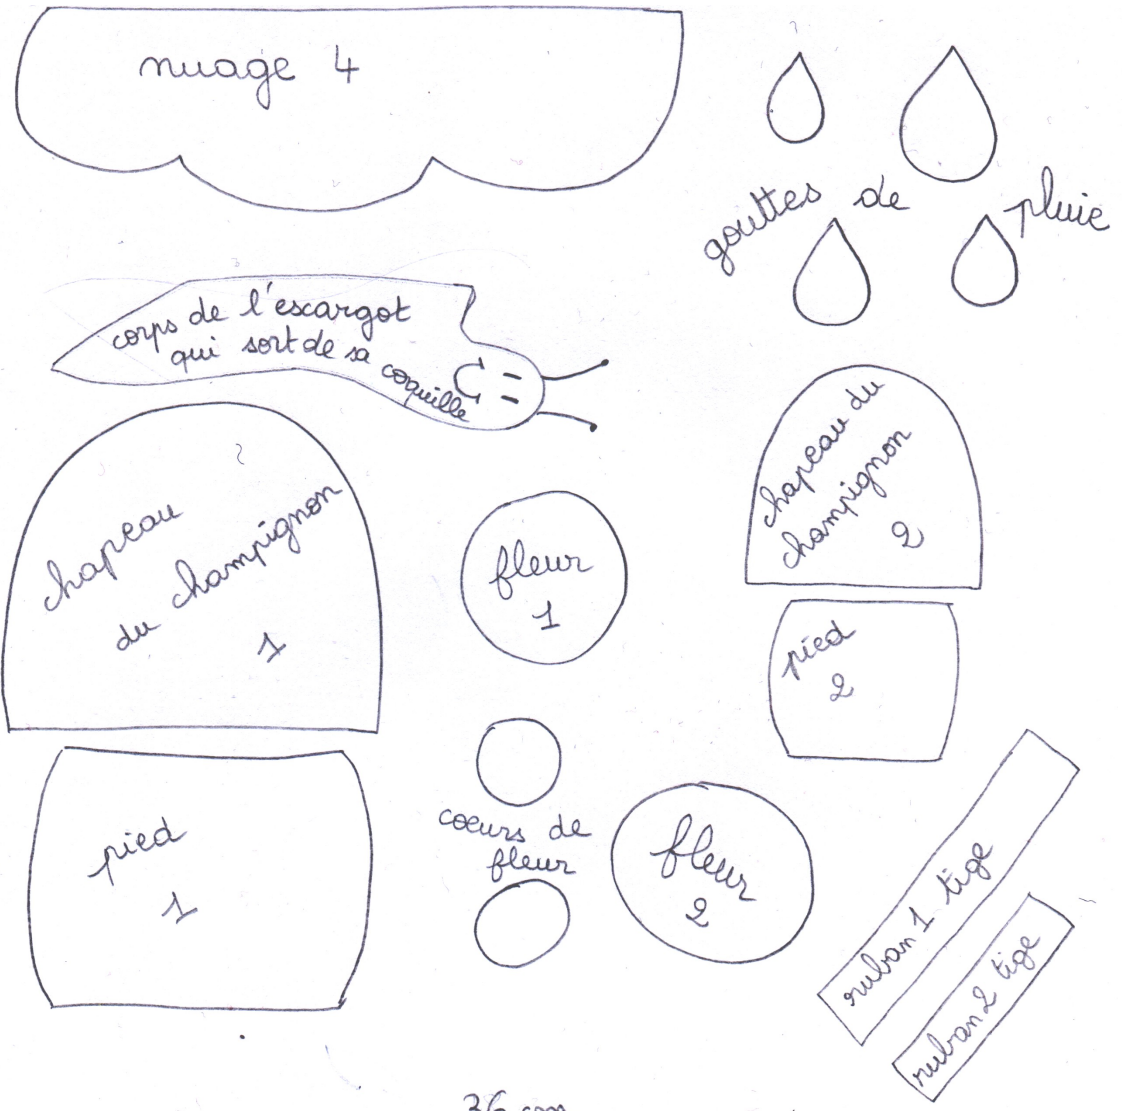 nuage 4
gouttes de pluie
corps de l'escargot
qui sort de sa coquille
chapeau du
champignon
2
chapeau
du champignon
1
fleur
1
pied
2
coeurs de
fleur
pied
1
fleur
2
ruban 1 tige
ruban 2 tige
36 cm